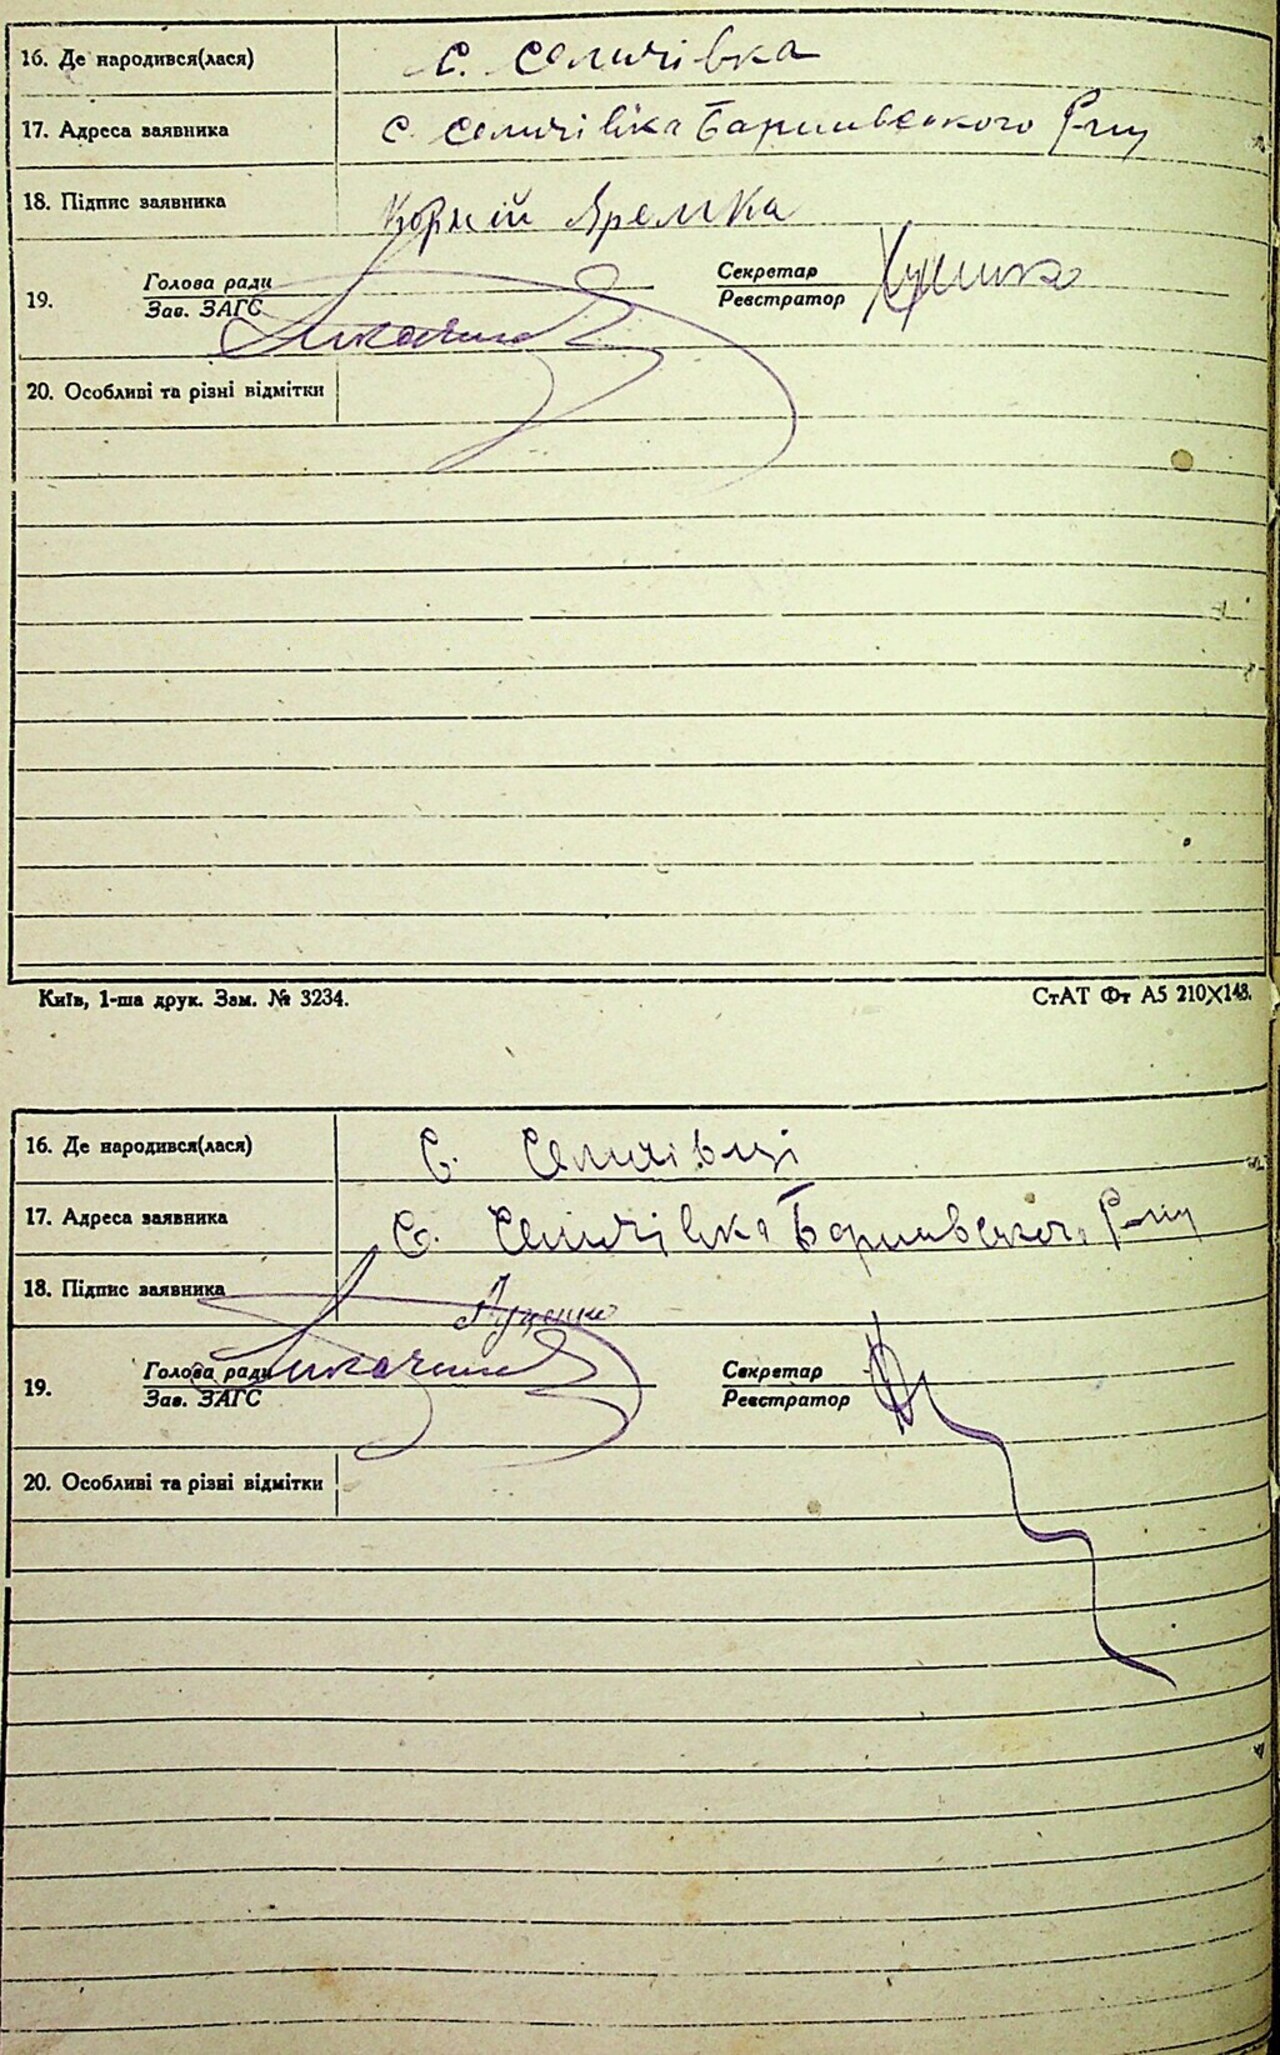 16. Де народився(лася) с. Селичівка
17. Адреса заявника с. Селичівка Баришевського р-ну
18. Підпис заявника Корній Яремка
Голова ради Секретар
19. Зав. ЗАГС Реєстратор
20. Особливі та різні відмітки
Київ, 1-ша друк. Зам. № 3234. СтАТ Фт А5 210X148.
16. Де народився(лася) С. Селичівці
17. Адреса заявника С. Селичівка Баришевського р-ну
18. Підпис заявника Луценко
Голова ради Секретар
19. Зав. ЗАГС Реєстратор
20. Особливі та різні відмітки